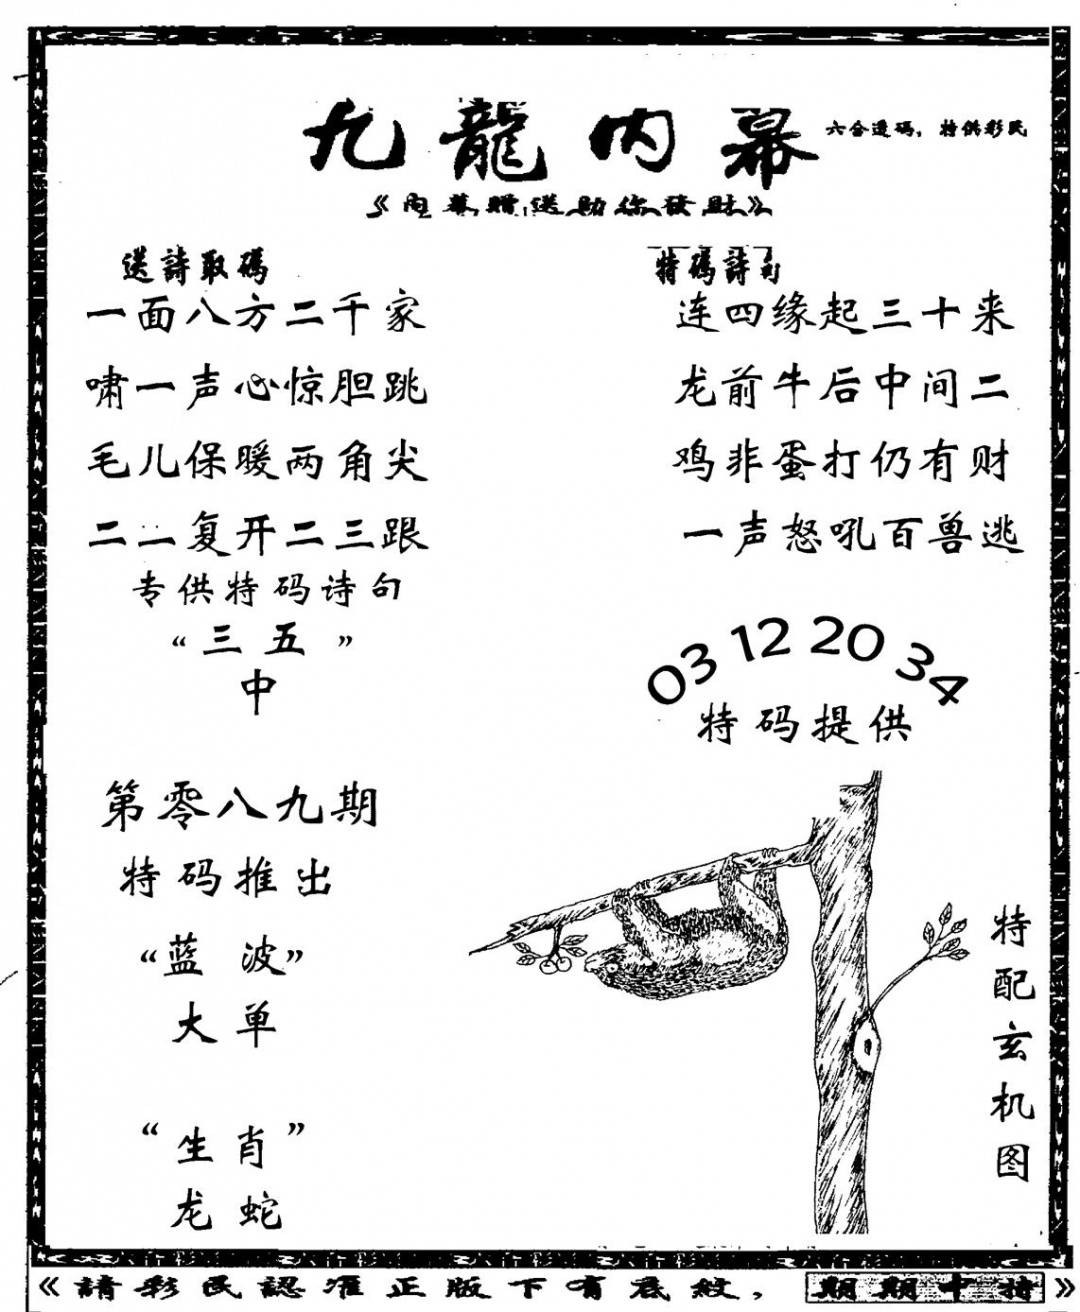 九龍内幕
六合透码，特供彩民
《内幕赠送助你發财》
送詩取碼
一面八方二千家
啸一声心惊胆跳
毛儿保暖两角尖
二二复开二三跟
专供特码诗句
“三五”
中
第零八九期
特码推出
“蓝波”
大单
“生肖”
龙蛇
特碼詩句
连四缘起三十来
龙前牛后中间二
鸡非蛋打仍有财
一声怒吼百兽逃
03 12 20 34
特码提供
特配玄机图
《請彩民認准正版下有底紋，期期中特》